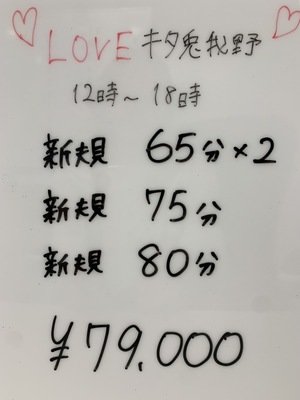 LOVE キタ兎我野
12時~18時
新規 65分×2
新規 75分
新規 80分
¥79.000